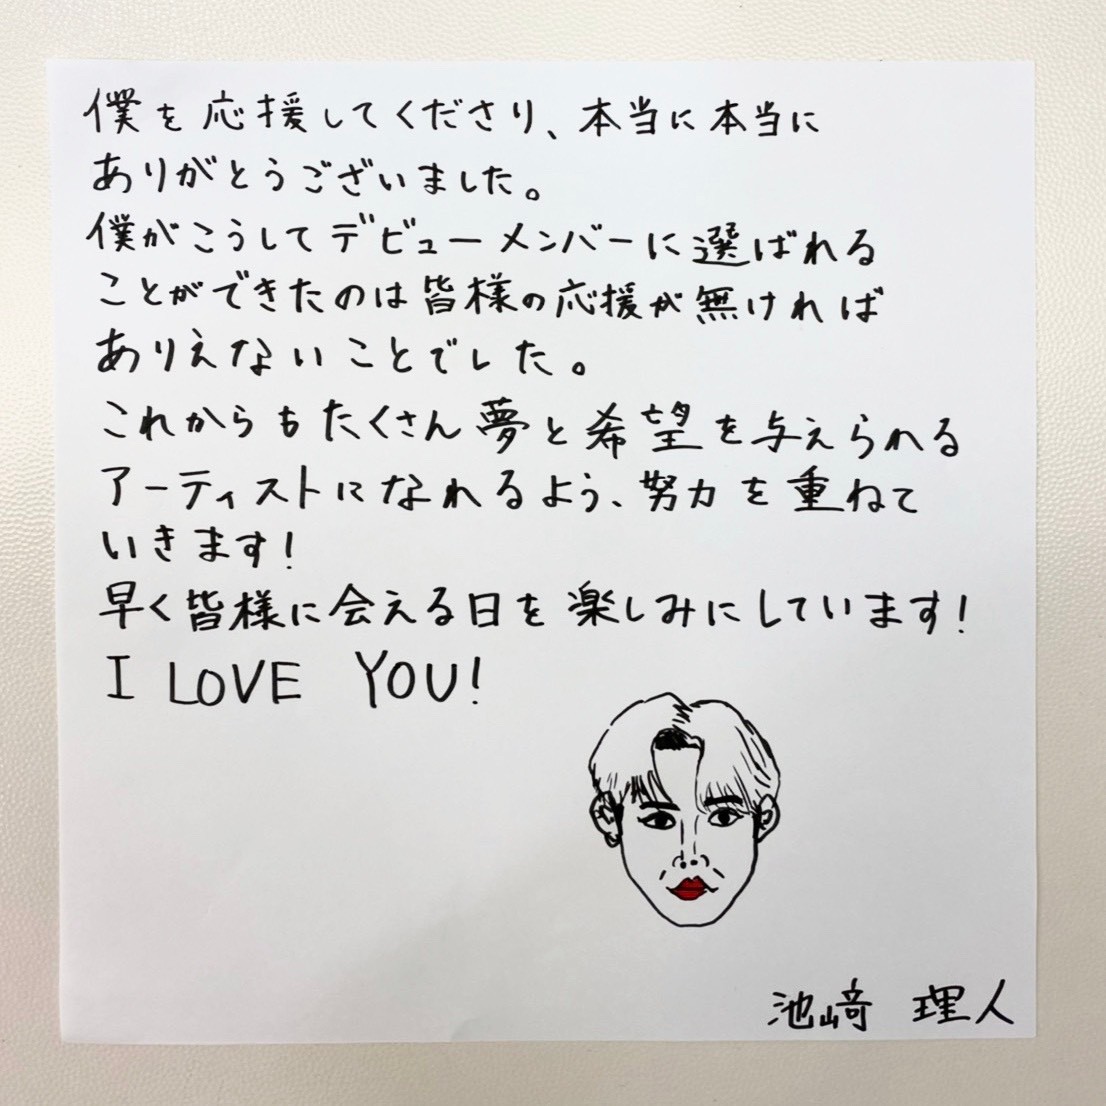 僕を応援してくださり、本当に本当に
ありがとうございました。
僕がこうしてデビューメンバーに選ばれる
ことができたのは皆様の応援が無ければ
ありえないことでした。
これからもたくさん夢と希望を与えられる
アーティストになれるよう、努力を重ねて
いきます!
早く皆様に会える日を楽しみにしています!
I LOVE YOU!
池﨑 理人